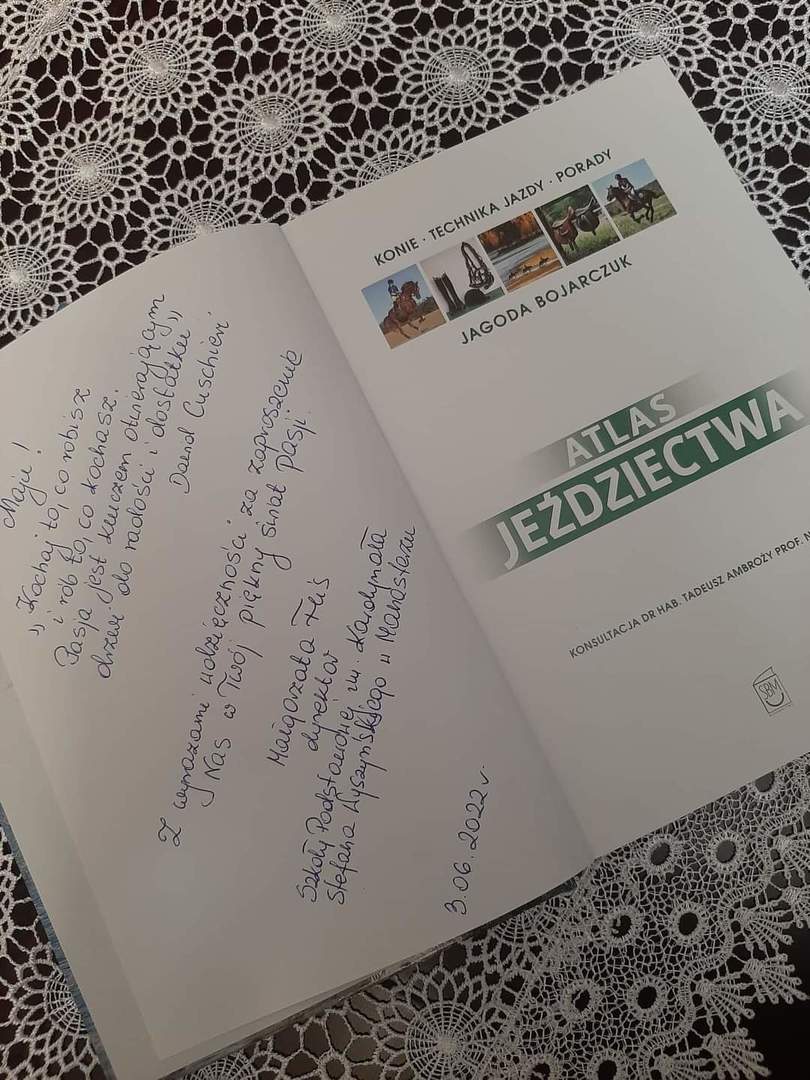 Maju!
„Kochaj to, co robisz
i rób to, co kochasz.
Pasja jest kluczem otwierającym
drzwi do radości i dostatku"
David Cuschieri
Z wyrazami wdzięczności za zaproszenie
Nas w Twój piękny świat pasji
Małgorzata Flis
dyrektor
Szkoły Podstawowej im. Kardynała
Stefana Wyszyńskiego w
3.06.2022 r.
KONIE · TECHNIKA JAZDY · PORADY
JAGODA BOJARCZUK
ATLAS
JEŹDZIECTWA
KONSULTACJA DR HAB. TADEUSZ AMBROŻY PROF. N
SBM